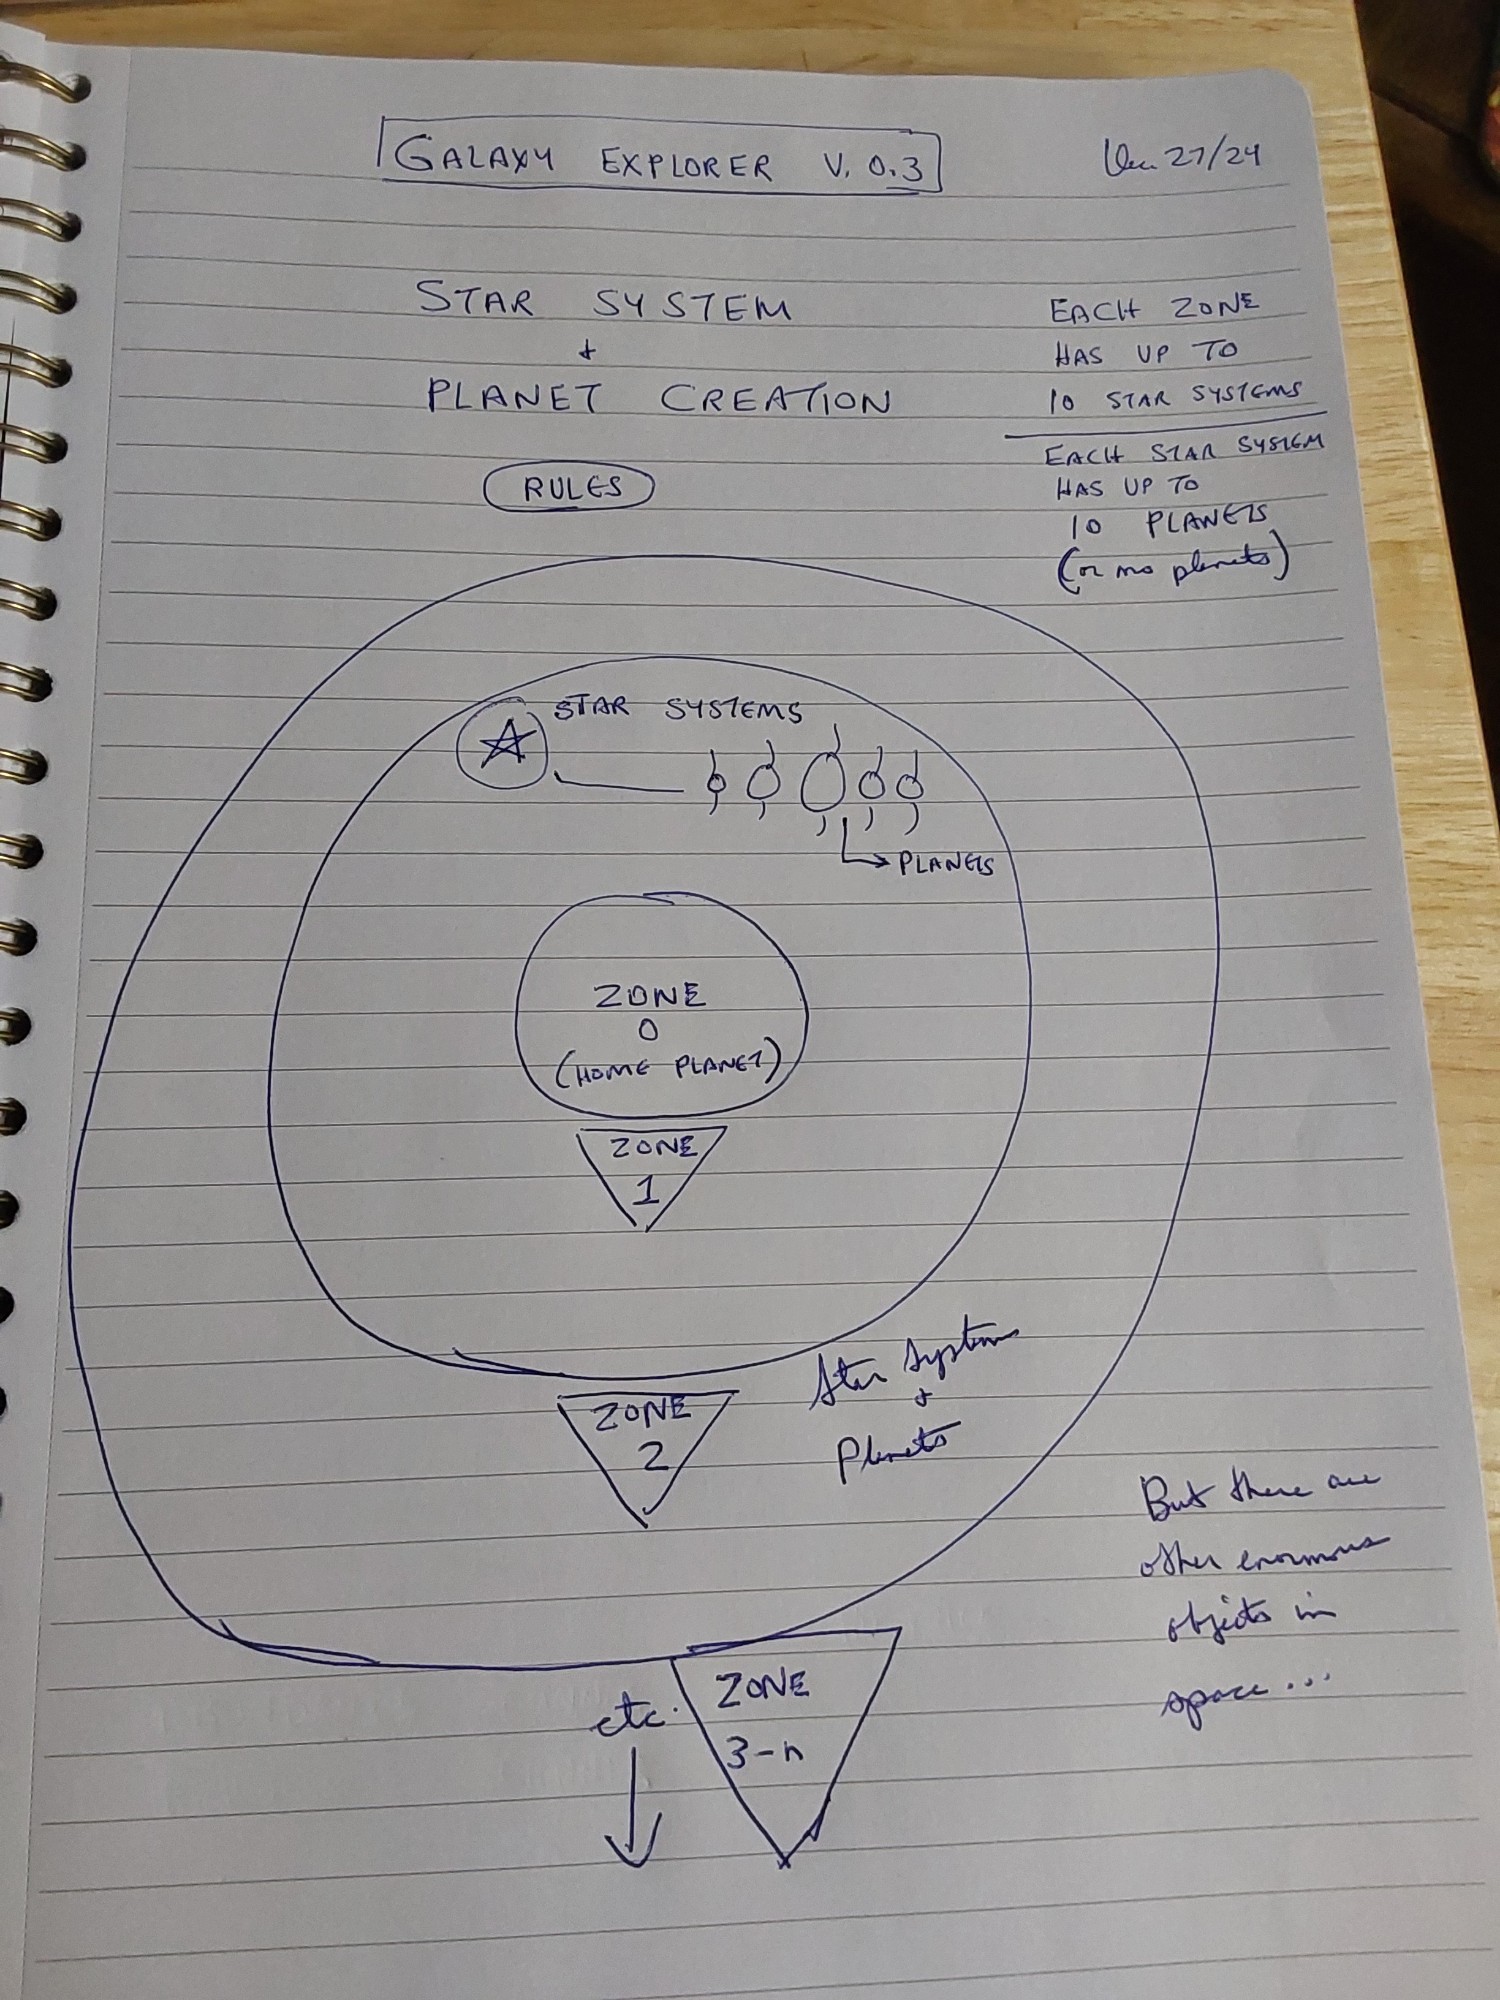 GALAXY EXPLORER V. 0.3
27/24
STAR SYSTEM
+
PLANET CREATION
RULES
EACH ZONE
HAS UP TO
10 STAR SYSTEMS
EACH STAR SYSTEM
HAS UP TO
10 PLANETS
(or no planets)
STAR SYSTEMS
PLANETS
ZONE
0
(HOME PLANET)
ZONE
1
Star Systems
+
Planets
ZONE
2
But there are
other enormous
objects in
space...
etc.
ZONE
3-n